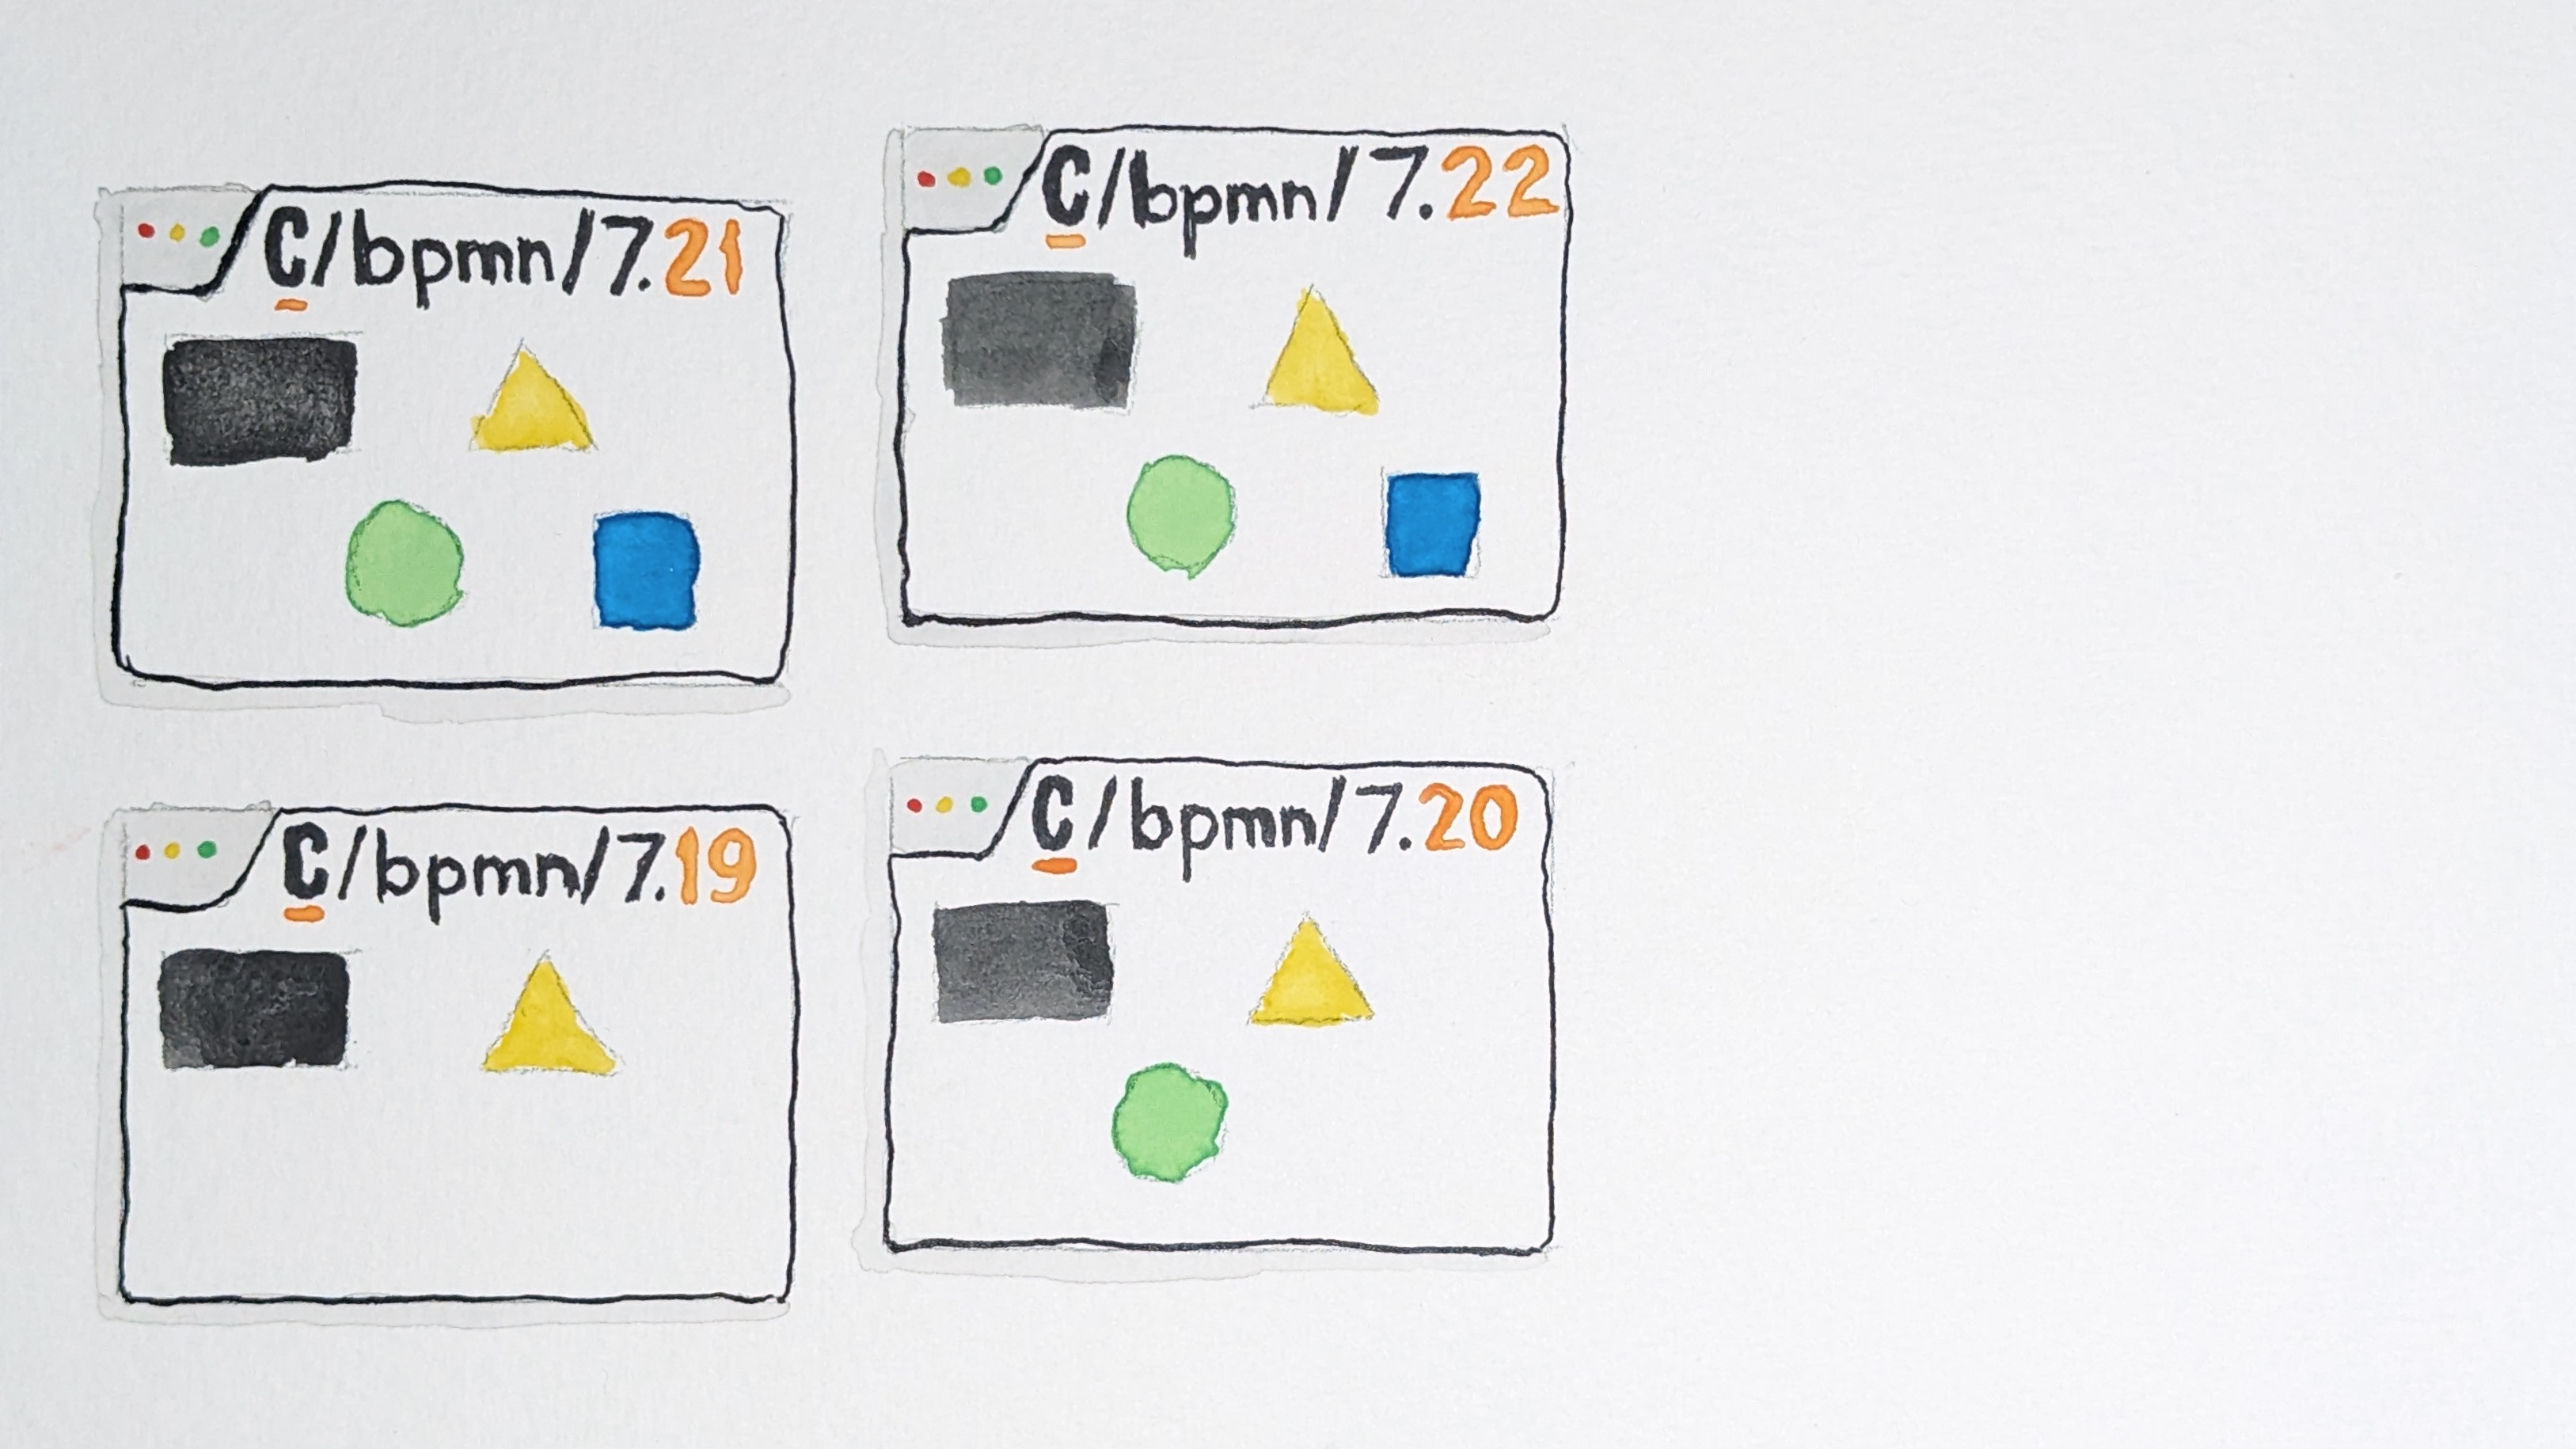 C/bpmn/7.21
C/bpmn/7.22
C/bpmn/7.19
C/bpmn/7.20